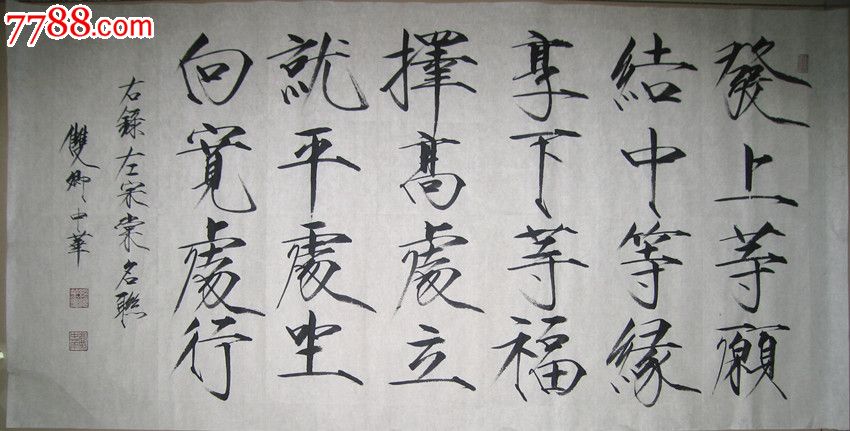 7788.com
發上等願
結中等緣
享下等福
擇高處立
就平處坐
向寬處行
右錄左宗棠名聯
雙卿中華